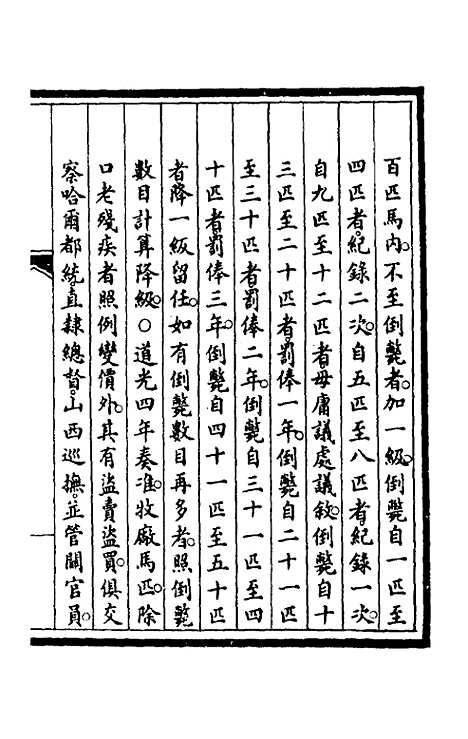 百匹馬內。不至倒斃者。加一級。倒斃自一匹至
四匹者。紀錄二次。自五匹至八匹者。紀錄一次。
自九匹至十二匹者。毋庸議處議敘。倒斃自十
三匹至二十匹者。罰俸一年。倒斃自二十一匹
至三十匹者。罰俸二年。倒斃自三十一匹至四
十匹者。罰俸三年。倒斃自四十一匹至五十匹
者。降一級留任。如有倒斃數目再多者。照倒斃
數目計算降級。○道光四年奏准。牧廠馬匹。除
口老殘疾者。照例變價外。其有盜賣盜買。俱交
察哈爾都統。直隸總督。山西巡撫。並管關官員。